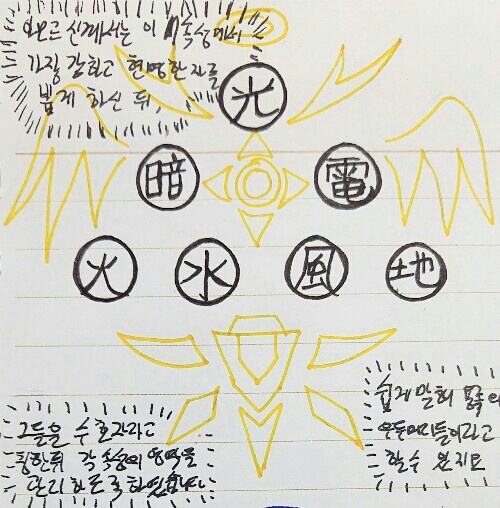 이 속성에서
가장 강하고 현명한 자를
뽑게 하신 뒤,
光
暗 電
火 水 風 地
그들을 수호자라고
칭한뒤 각 속성의 영역을
관리하도록 하였습니다.
쉽게 말해
우두머리들이라고
할수 있지요